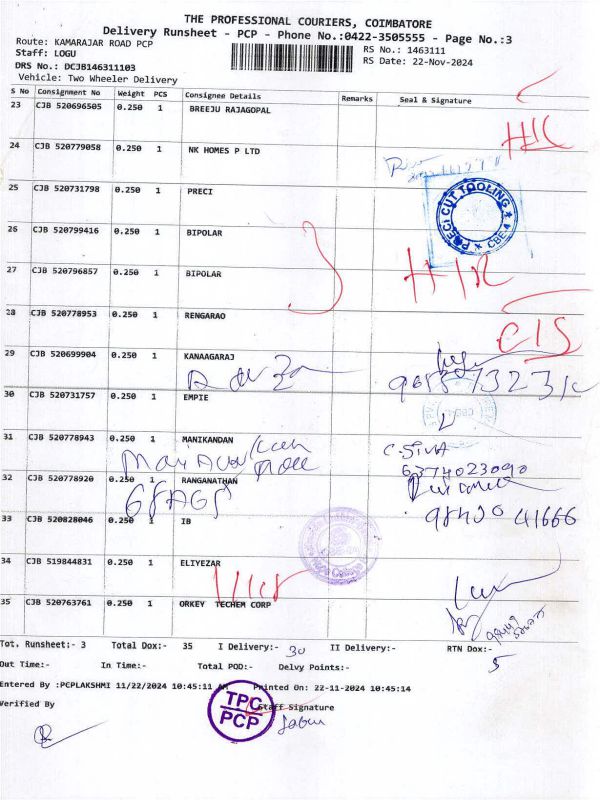 THE PROFESSIONAL COURIERS, COIMBATORE
Delivery Runsheet - PCP - Phone No.:0422-3505555 - Page No.:3
Route: KAMARAJAR ROAD PCP
RS No.: 1463111
Staff: LOGU
RS Date: 22-Nov-2024
DRS No.: DCJB146311103
Vehicle: Two Wheeler Delivery
S No Consignment No Weight PCS Consignee Details Remarks Seal & Signature
23 CJB 520696505 0.250 1 BREEJU RAJAGOPAL
24 CJB 520779058 0.250 1 NK HOMES P LTD
25 CJB 520731798 0.250 1 PRECI
PRECI CUT TOOLING CBE-4
26 CJB 520799416 0.250 1 BIPOLAR
27 CJB 520796857 0.250 1 BIPOLAR
28 CJB 520778953 0.250 1 RENGARAO
29 CJB 520699904 0.250 1 KANAAGARAJ
30 CJB 520731757 0.250 1 EMPIE
31 CJB 520778943 0.250 1 MANIKANDAN
C. SIVA
6374023090
32 CJB 520778920 0.250 1 RANGANATHAN
98420 41666
33 CJB 520828046 0.250 1 IB
34 CJB 519844831 0.250 1 ELIYEZAR
35 CJB 520763761 0.250 1 ORKEY TECHEM CORP
Tot. Runsheet:- 3 Total Dox:- 35 I Delivery:- 30 II Delivery:- RTN Dox:- 5
Out Time:- In Time:- Total POD:- Delvy Points:-
Entered By :PCPLAKSHMI 11/22/2024 10:45:11 AM Printed On: 22-11-2024 10:45:14
Verified By
TPC
PCP
Staff Signature